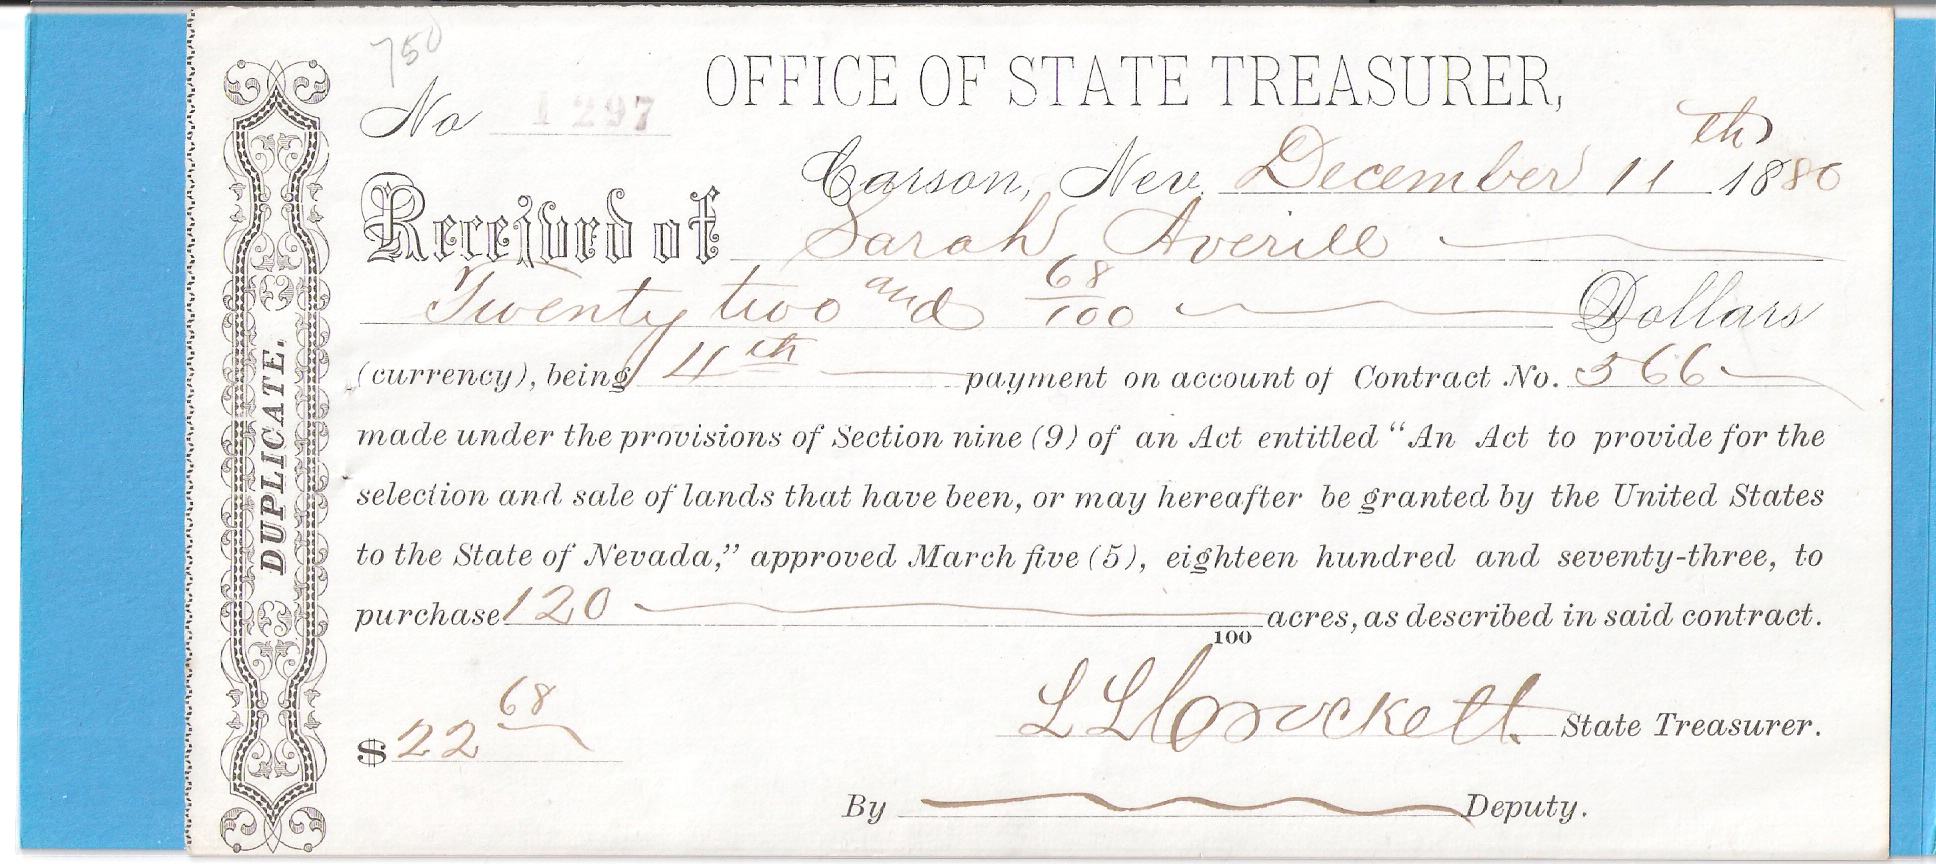 750
OFFICE OF STATE TREASURER,
No 1297
Carson, Nev. December 11th 1880
Received of Sarah Averill
Twenty two and 68/100 Dollars
(currency), being 4th payment on account of Contract No. 366
made under the provisions of Section nine (9) of an Act entitled “An Act to provide for the
selection and sale of lands that have been, or may hereafter be granted by the United States
to the State of Nevada,” approved March five (5), eighteen hundred and seventy-three, to
purchase 120 acres, as described in said contract.
100
$22 68
L L Crockett State Treasurer.
By Deputy.
DUPLICATE.